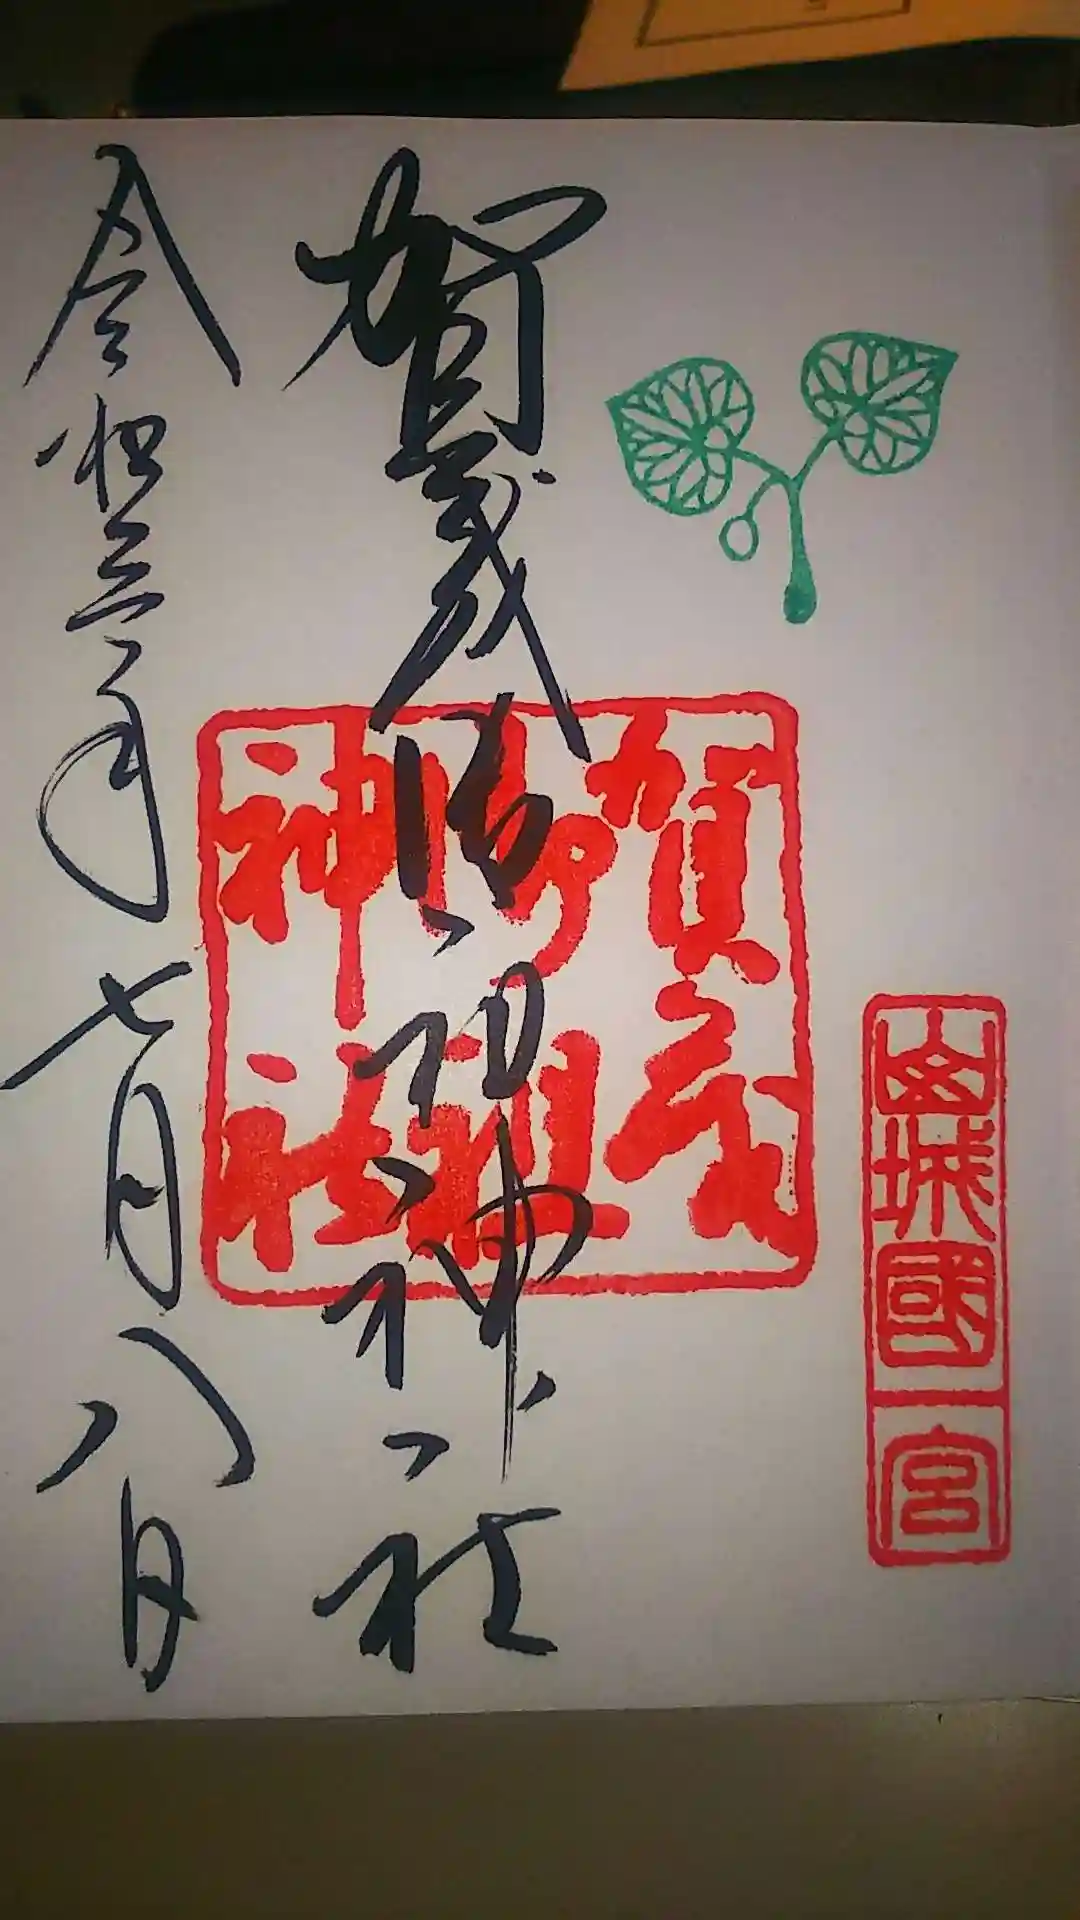 山城國
一宮
賀茂御祖神社
賀茂
御祖
神社
令和三年七月八日